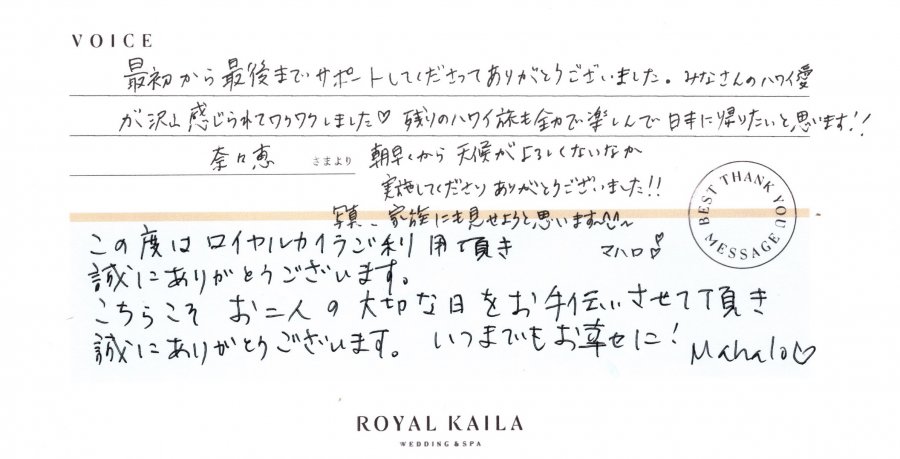 VOICE
最初から最後までサポートしてくださってありがとうございました。みなさんのハワイ愛
が沢山感じられてワクワクしました♡ 残りのハワイ旅も全力で楽しんで日本に帰りたいと思います!!
奈々恵 さまより 朝早くから天候がよろしくないなか
実施してくださりありがとうございました!!
写真、家族にも見せようと思います^^~
マハロ
BEST THANK YOU MESSAGE
この度はロイヤルカイラご利用頂き
誠にありがとうございます。
こちらこそ お二人の大切な日をお手伝いさせて頂き
誠にありがとうございます。いつまでもお幸せに!
Mahalo♡
ROYAL KAILA
WEDDING & SPA